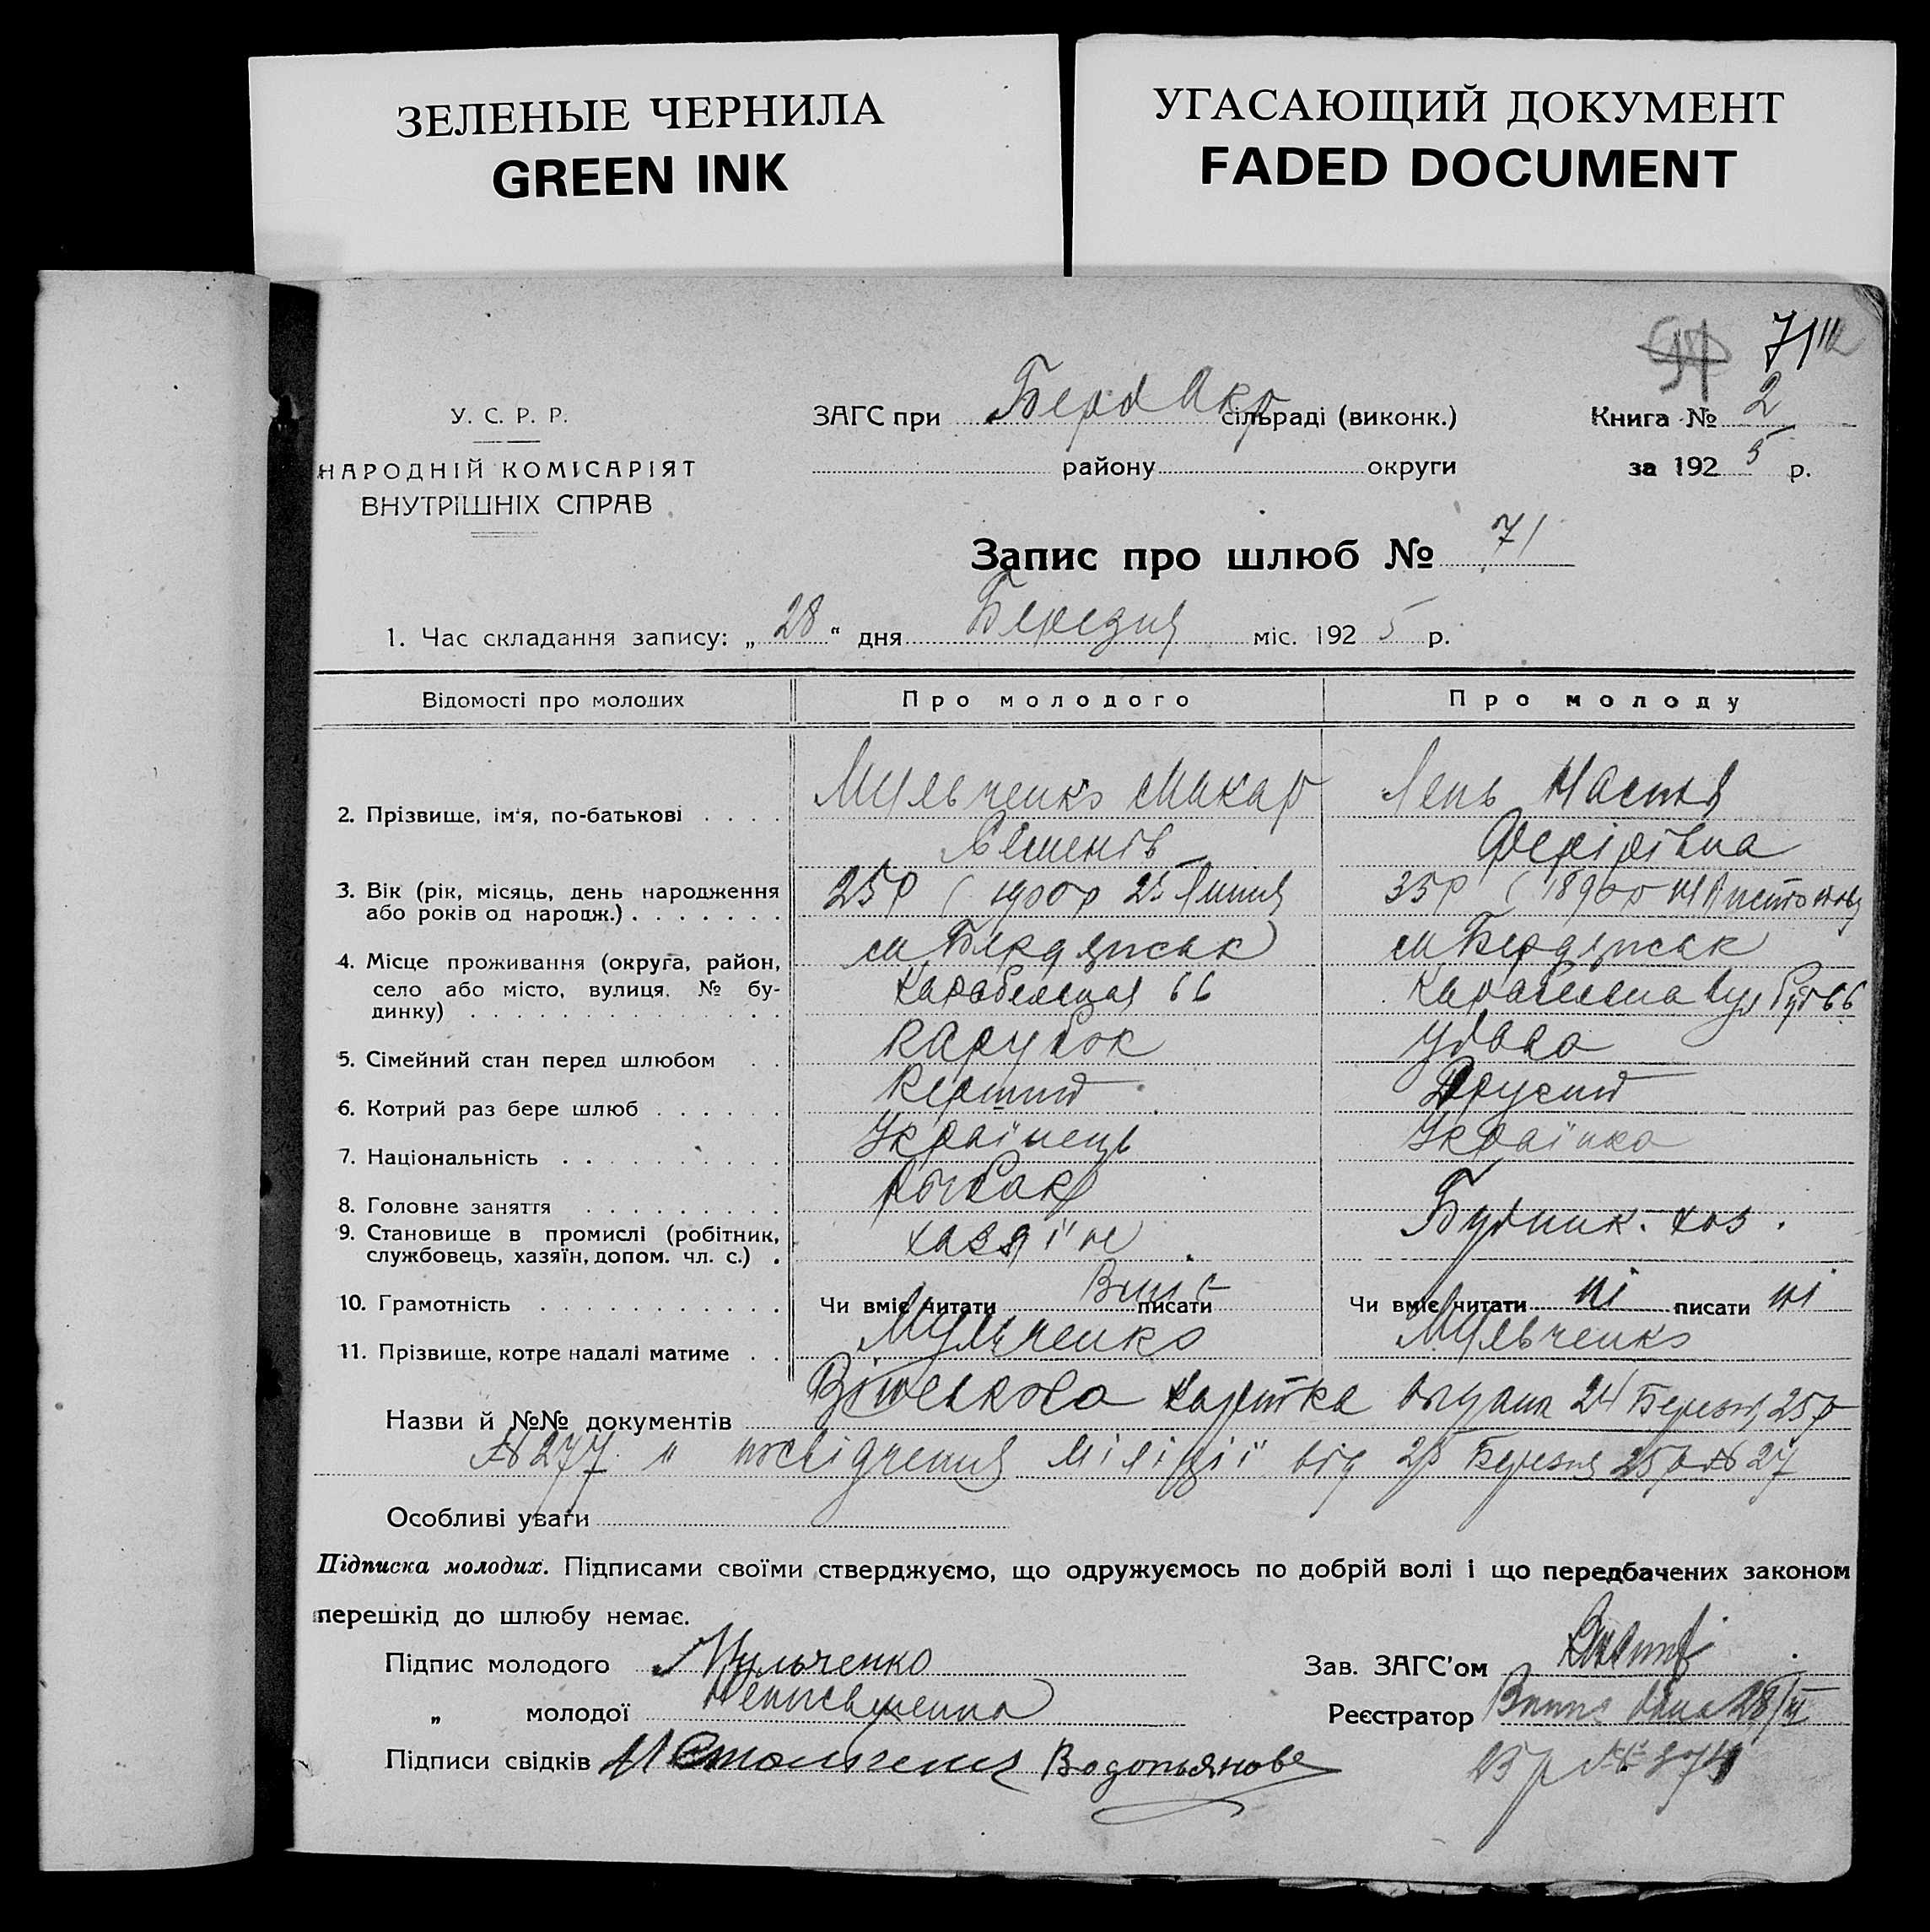 ЗЕЛЕНЫЕ ЧЕРНИЛА
GREEN INK
УГАСАЮЩИЙ ДОКУМЕНТ
FADED DOCUMENT
71
У. С. Р. Р.
НАРОДНІЙ КОМІСАРІЯТ
ВНУТРІШНІХ СПРАВ
ЗАГС при Берд Окр сільраді (виконк.)
району округи
Книга № 2
за 1925 р.
Запис про шлюб № 71
1. Час складання запису: „28“ дня Березня міс. 1925 р.
Відомості про молодих Про молодого Про молоду
2. Прізвище, ім'я, по-батькові . . . . Мульченко Макар Лень Настя
Семенів
3. Вік (рік, місяць, день народження або років од народж.) . . . . . . . 25р (1900р 25 Липня 35р (1890р
4. Місце проживання (округа, район, село або місто, вулиця, № будинку) . . . . . . . . . . . . . . м Бердянськ м Бердянськ
66 вул 66
5. Сімейний стан перед шлюбом . . парубок удова
6. Котрий раз бере шлюб . . . . . . Перший Другий
7. Національність . . . . . . . . . . Українець Українка
8. Головне заняття . . . . . . . . . рыбак
9. Становище в промислі (робітник, службовець, хазяїн, допом. чл. с.) . хазяїн Будинк. хоз.
10. Грамотність . . . . . . . . . . . . Чи вміє читати Вміє писати Чи вміє читати ні писати ні
11. Прізвище, котре надалі матиме . . Мульченко Мульченко
Назви й №№ документів Військова картка выдана 24 Березня 25р
№ 277 и посвідчення міліції від 28 Березня 25р № 27
Особливі уваги
Підписка молодих. Підписами своїми стверджуємо, що одружуємось по добрій волі і що передбачених законом
перешкід до шлюбу немає.
Підпис молодого Мульченко Зав. ЗАГС'ом
„ молодої Неписьменна Реєстратор 28/III
Підписи свідків Водопьянова
25р №